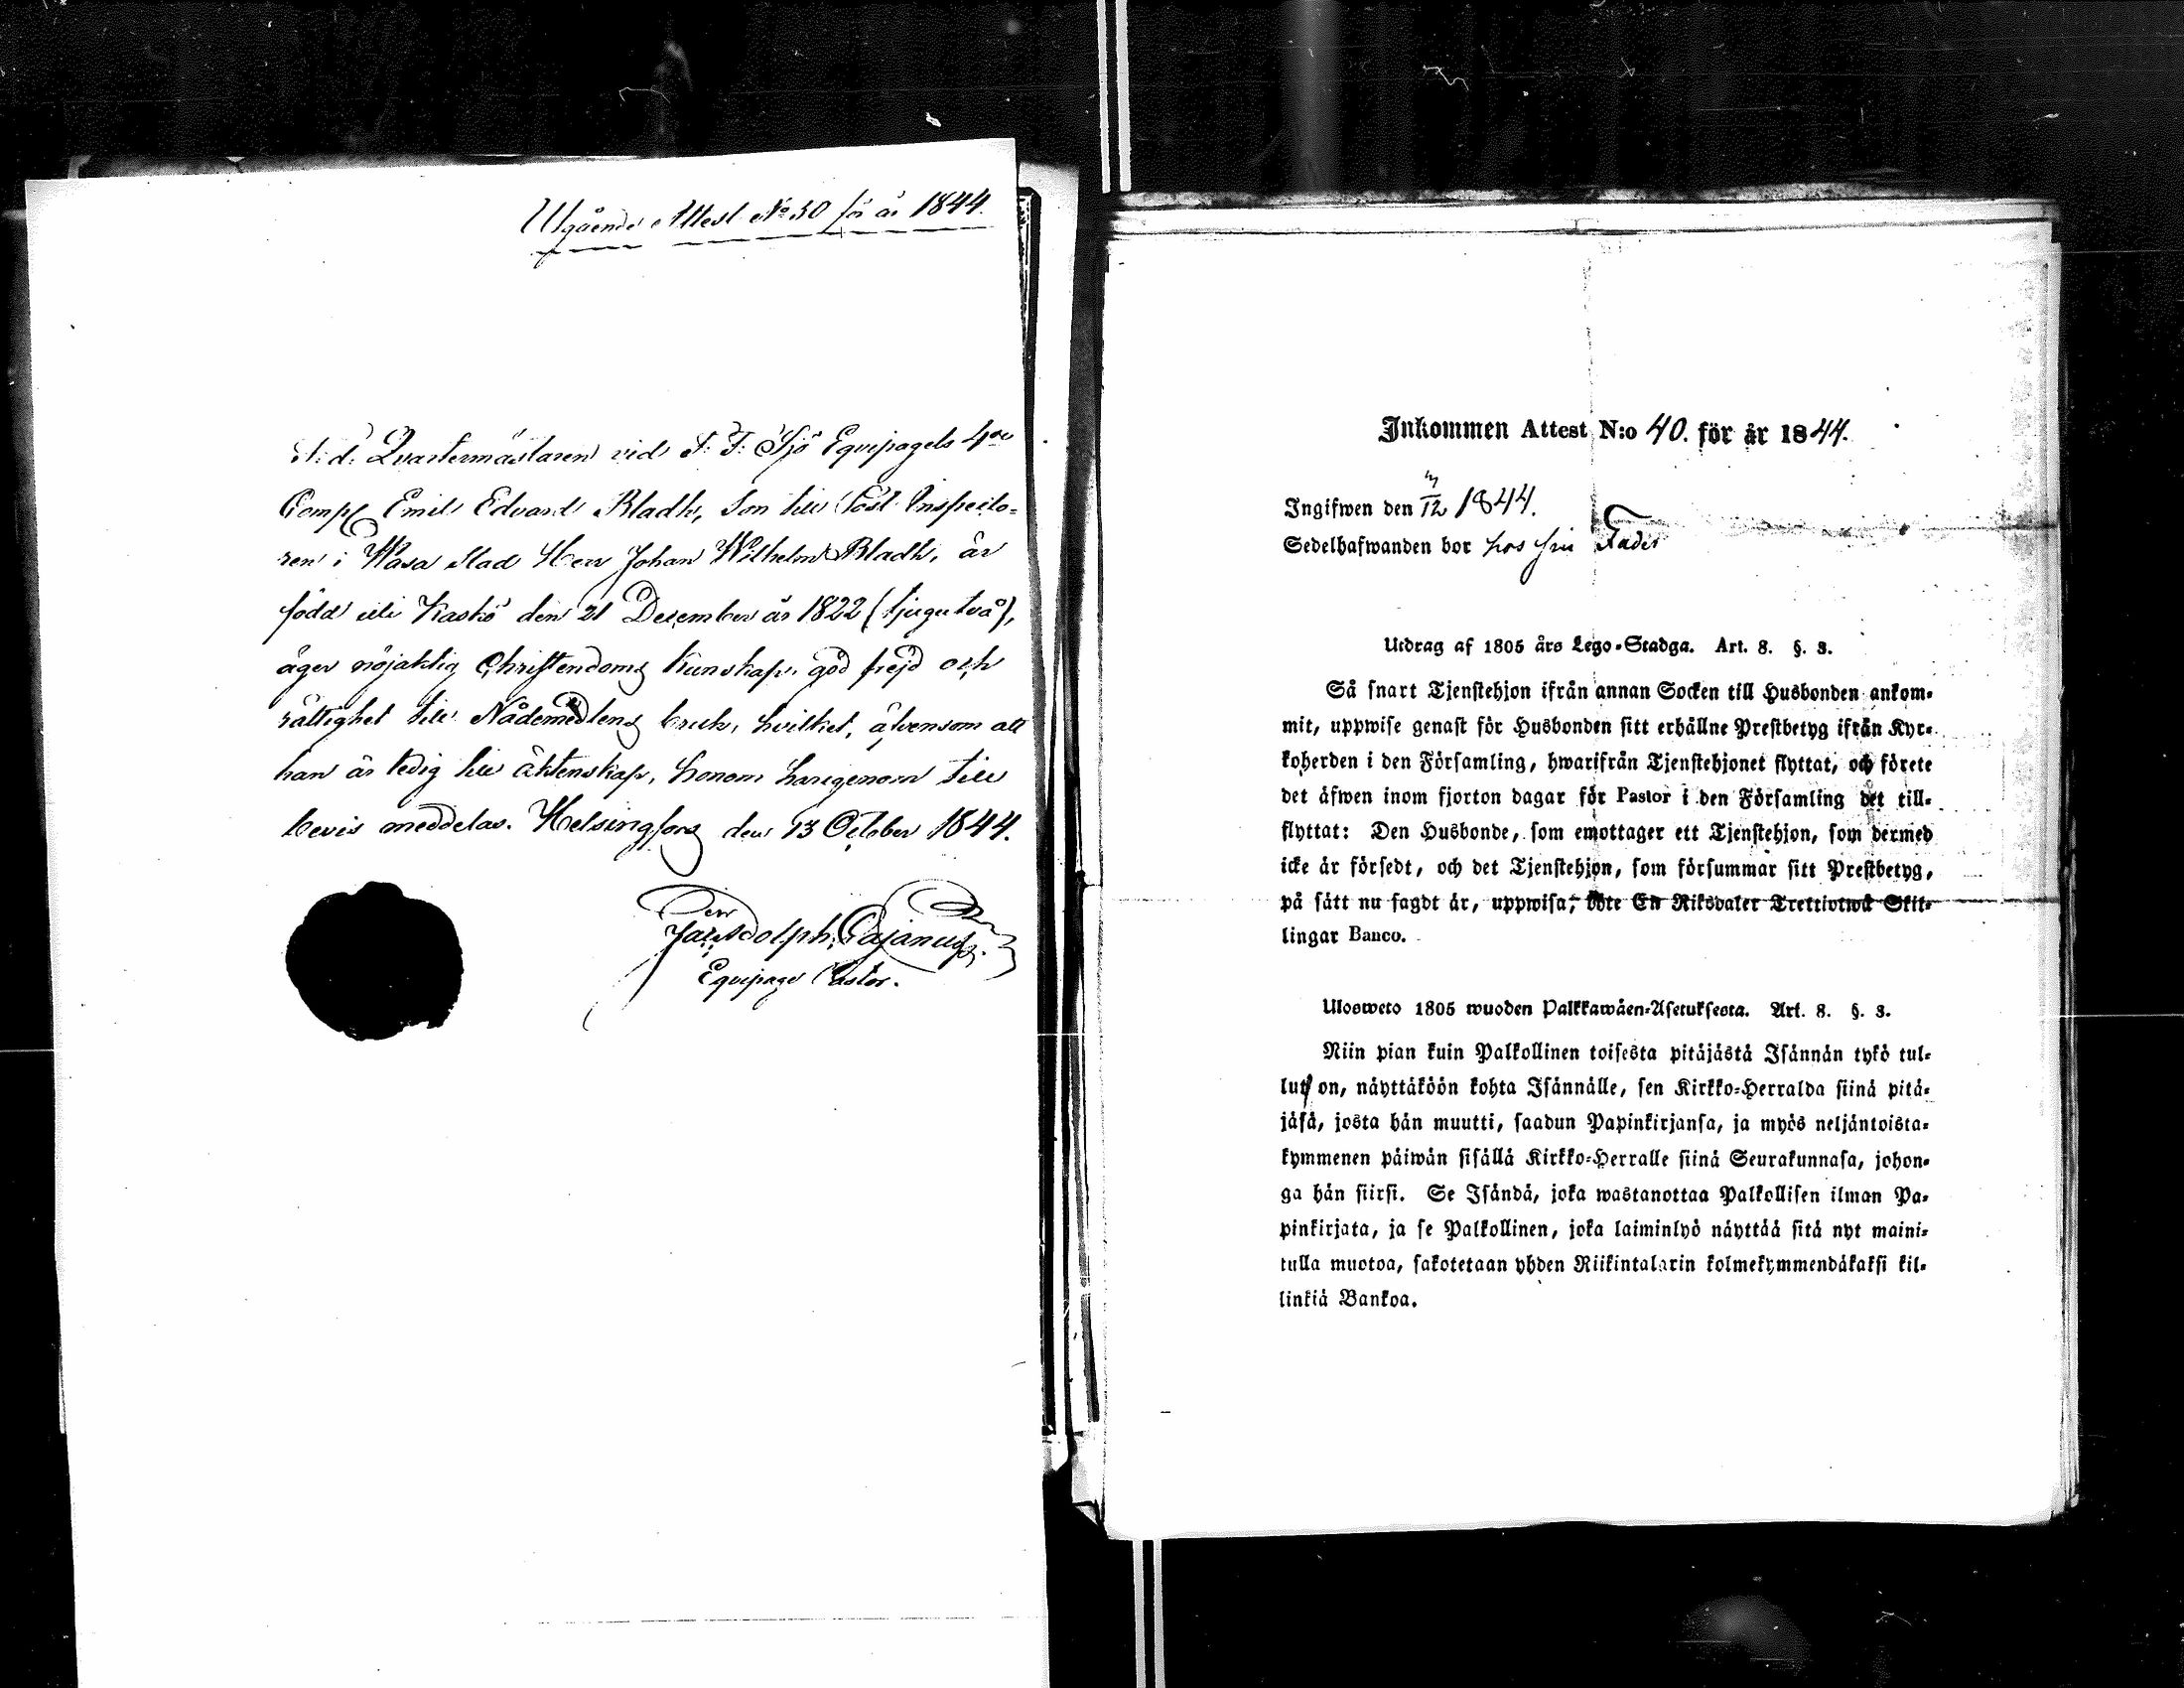 Utgående Attest No 50 för år 1844.
A: d: Qvartermästaren vid F: F: Sjö Equipagets 4de
Comp. Emil Edvard Bladh, Son till Post-Inspecto-
ren i Wasa Stad Herr Johan Wilhelm Bladh, är
född uti Kaskö den 21 December år 1822 (tjugutvå),
äger nöjaktig Christendoms kunskap, god frejd och
rättighet till Nådemedlens bruk, hvilket, äfvensom att
han är ledig till äktenskap, honom härigenom till
bevis meddelas. Helsingfors den 13 October 1844.
Adolph Pajanus
Equipage Pastor.
Inkommen Attest N:o 40. för år 1844.
Ingifwen den 3/12 1844.
Sedelhafwanden bor hos sin Fader
Utdrag af 1805 års Lego-Stadga. Art. 8. §. 3.
Så snart Tjenstehjon ifrån annan Socken till Husbonden ankom-
mit, uppwise genast för Husbonden sitt erhållne Prestbetyg ifrån Kyr-
koherden i den Församling, hwarifrån Tjenstehjonet flyttat, och förete
det äfwen inom fjorton dagar för Pastor i den Församling det till-
flyttat: Den Husbonde, som emottager ett Tjenstehjon, som dermed
icke är försedt, och det Tjenstehjon, som försummar sitt Prestbetyg,
på sätt nu sagdt är, uppwisa, böte En Riksdaler Trettiotwå Skil-
lingar Banco.
Ulosweto 1805 wuoden Palkkawäen-Asetuksesta. Art. 8. §. 3.
Niin pian kuin Palkollinen toisesta pitäjästä Isännän tykö tul-
lut on, näyttäköön kohta Isännälle, sen Kirkko-Herralda siinä pitä-
jäsä, josta hän muutti, saadun Papinkirjansa, ja myös neljäntoista-
kymmenen päiwän sisällä Kirkko-Herralle siinä Seurakunnasa, johon-
ga hän siirsi. Se Isändä, joka wastanottaa Palkollisen ilman Pa-
pinkirjata, ja se Palkollinen, joka laiminlyö näyttää sitä nyt maini-
tulla muotoa, sakotetaan yhden Riikintalarin kolmekymmendäkaksi kil-
linkiä Bankoa.